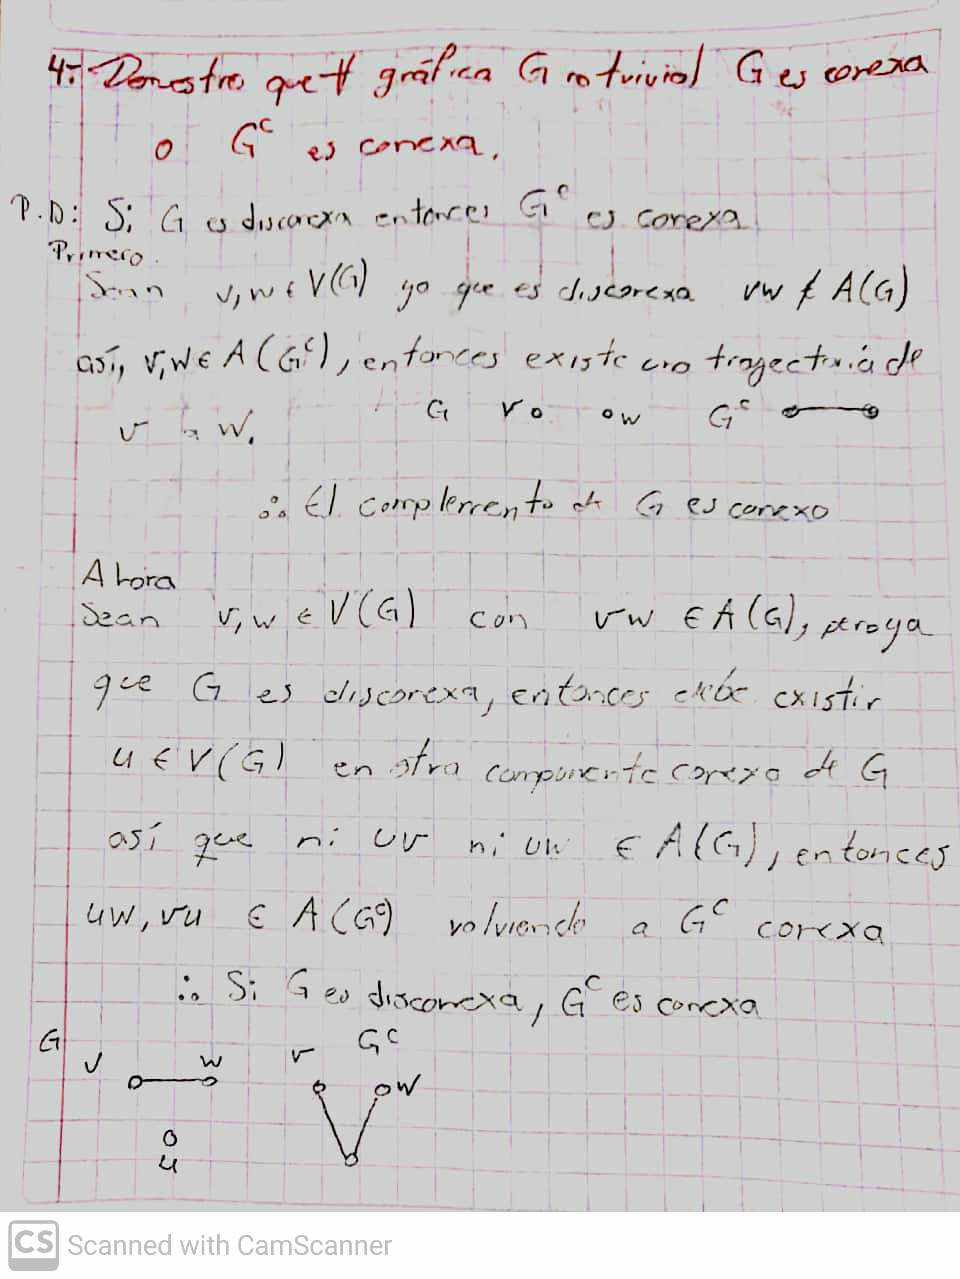 4.- Demostre que ∀ gráfica G no trivial G es conexa
o G^c es conexa.
P.D: Si G es disconexa entonces G^c es conexa
Primero.
Sean v,w ∈ V(G) ya que es disconexa vw ∉ A(G)
así, v,w ∈ A(G^c), entonces existe una trayectoria de
v a w.
G v w G^c
∴ El complemento de G es conexo
Ahora
Sean v,w ∈ V(G) con vw ∈ A(G), pero ya
que G es disconexa, entonces debe existir
u ∈ V(G) en otra componente conexa de G
así que ni uv ni uw ∈ A(G), entonces
uw, vu ∈ A(G^c) volviendo a G^c conexa
∴ Si G es disconexa, G^c es conexa
G v w v G^c w
u
CS Scanned with CamScanner